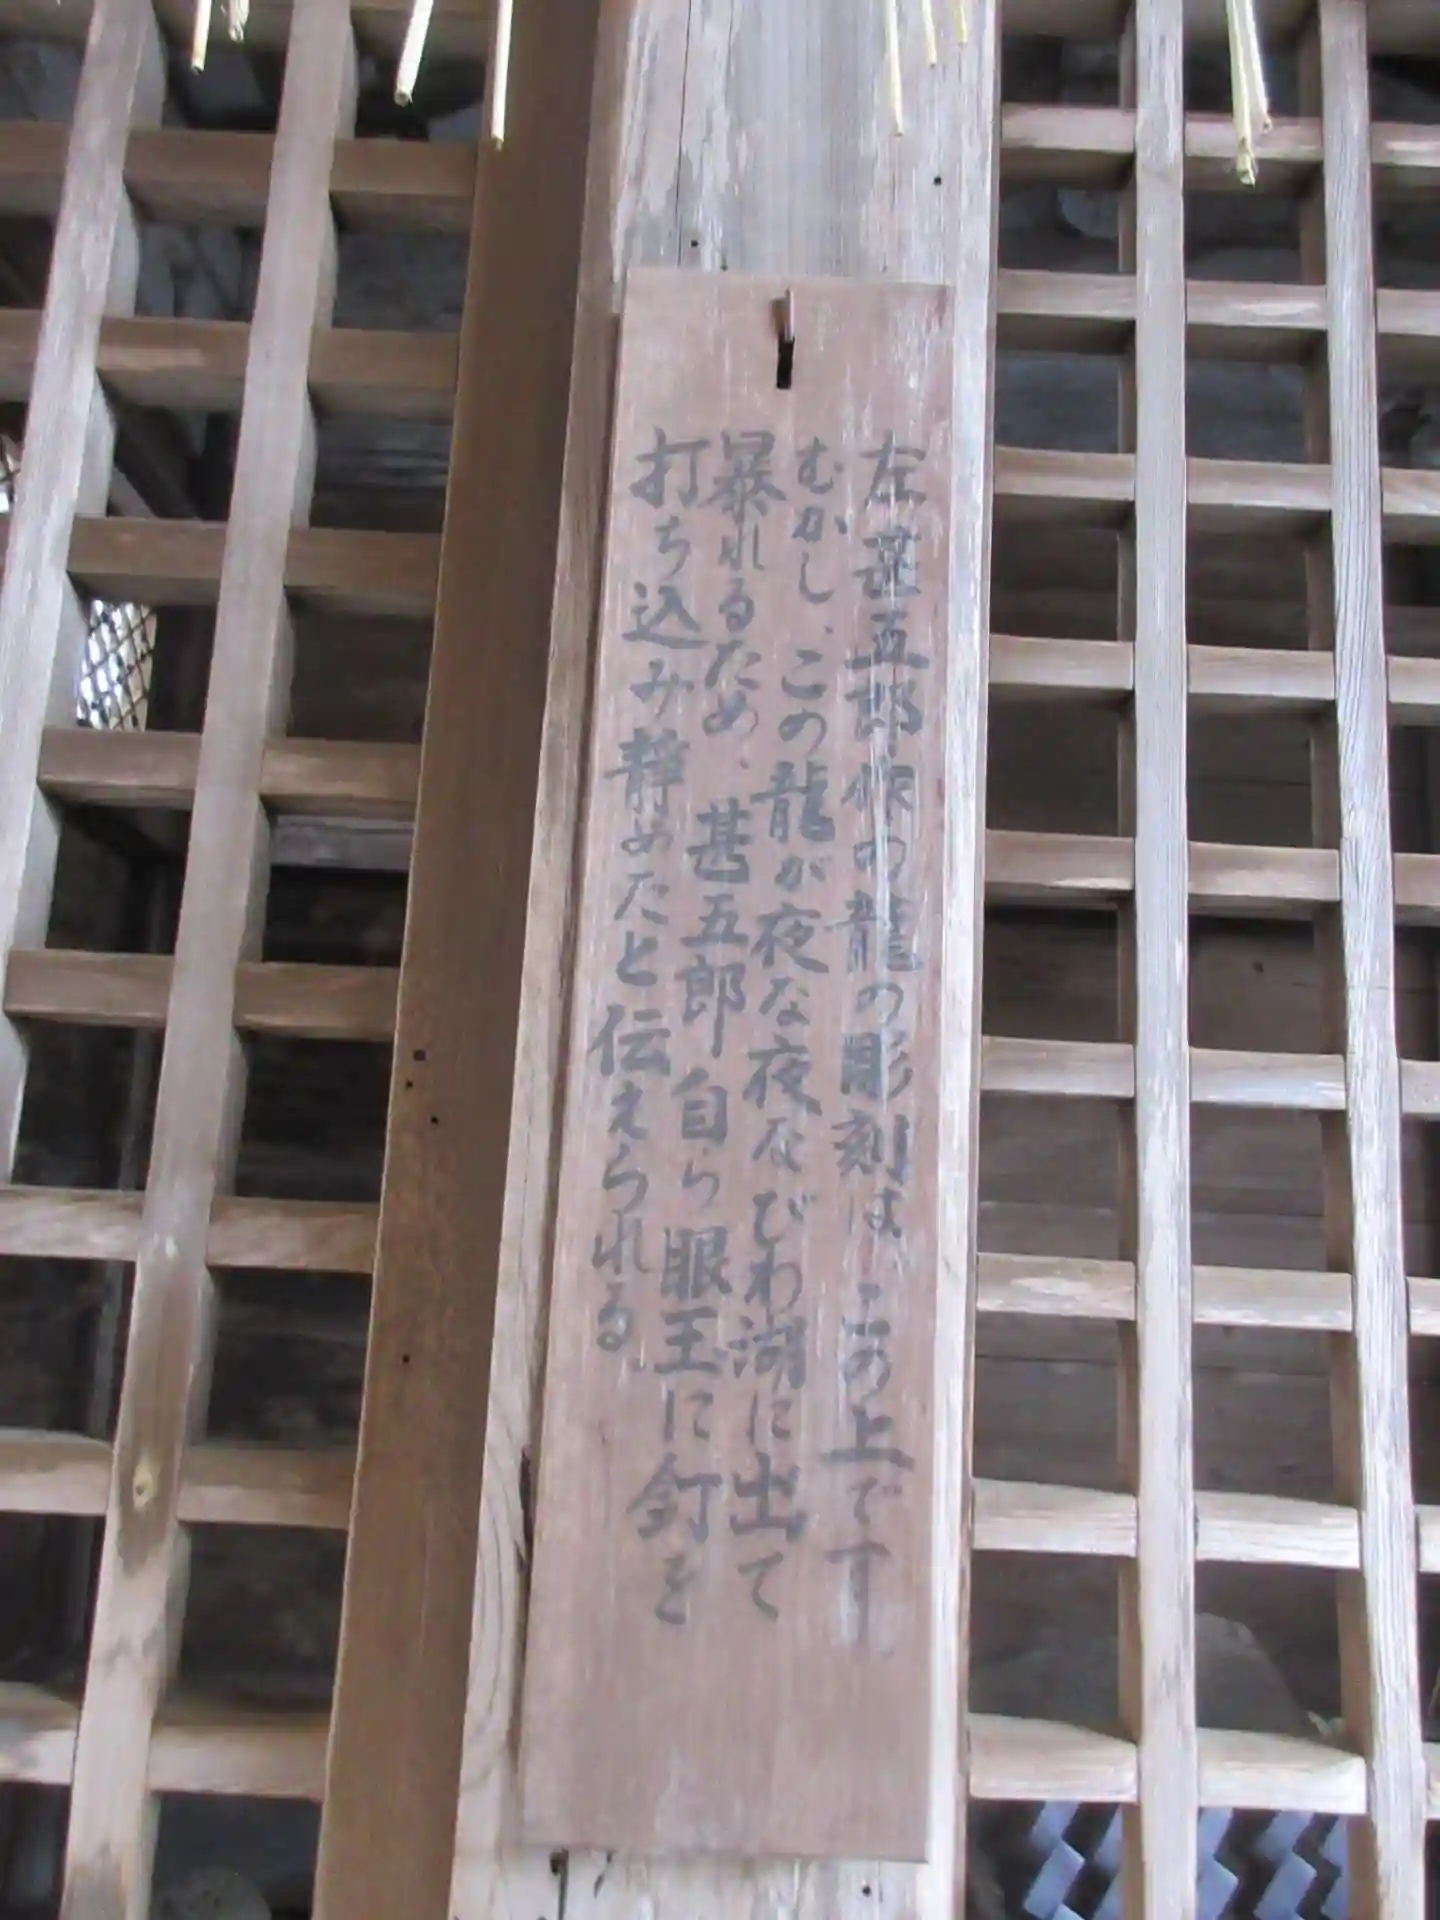 左甚五郎作の龍の彫刻は、この上です
むかし、この龍が夜な夜なびわ湖に出て
暴れるため、甚五郎自ら眼玉に釘を
打ち込み静めたと伝えられる